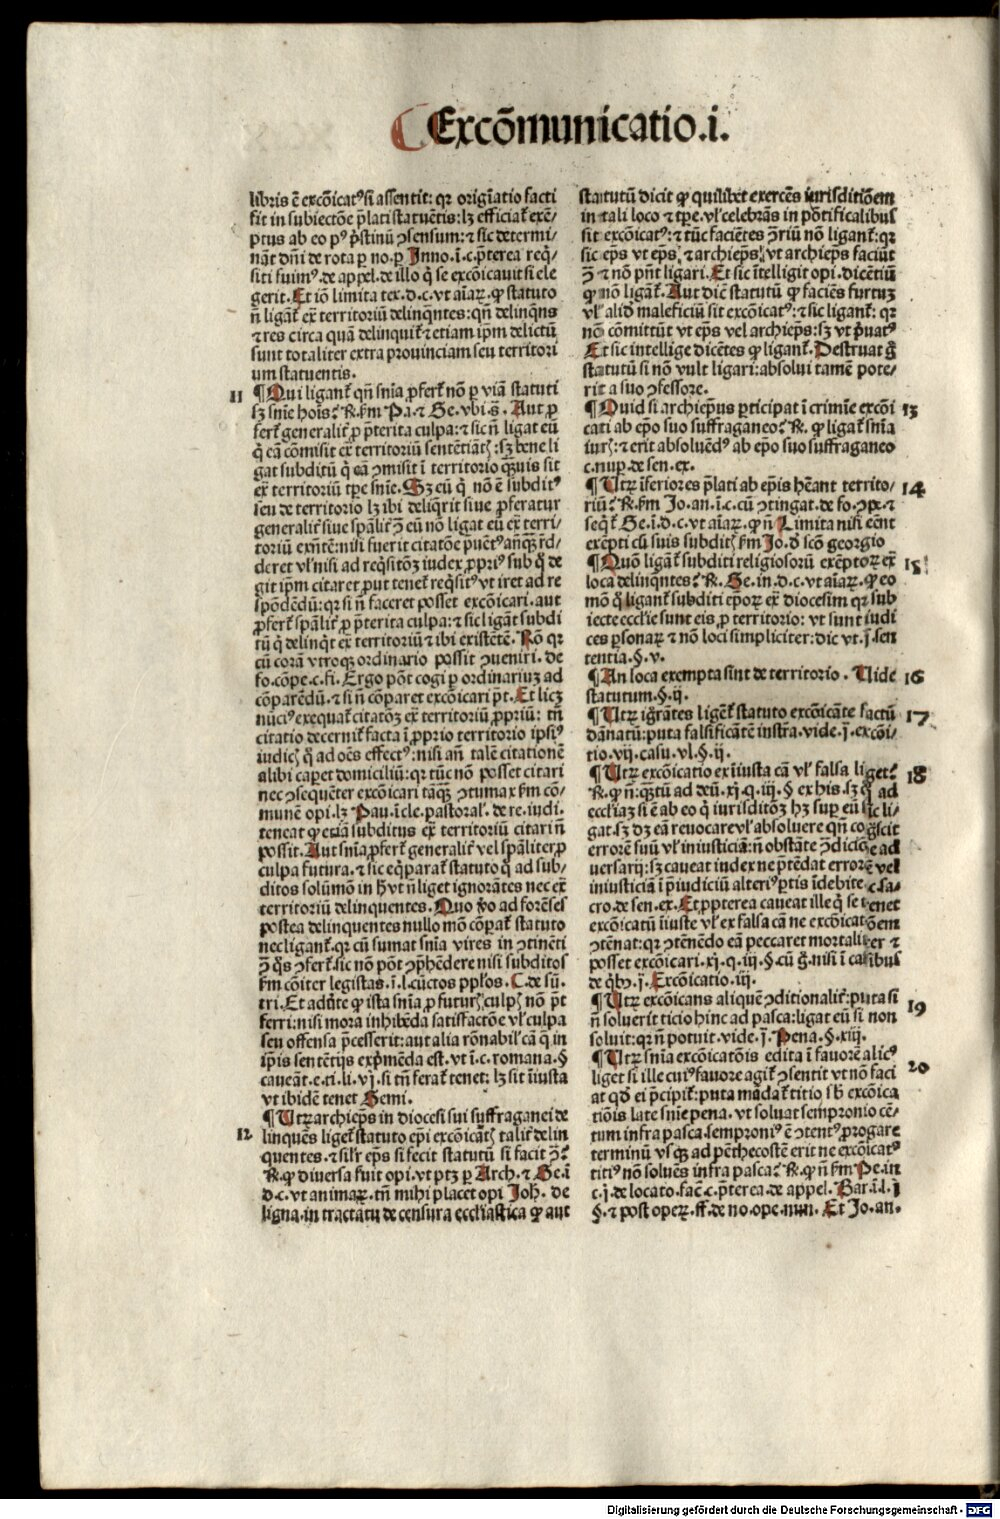 Excõmunicatio.i.
libris ē excõicatꝰ si assentit: qꝛ originatio facti
fit in subiectõe p̄lati statuētis: lꝫ efficiat̄ exē/
ptus ab eo pꝰ p̄stinũ ↄsensum: ⁊ sic determi/
nãt dñi de rota ꝑ no. ꝑ Inno. ĩ. c. p̄terea req̇/
siti fuimꝰ. de appel. de illo q̇ se excõicauit si ele
gerit. Et iõ limita tex. d. c. vt aĩaꝝ. ꝙ statuto
ñ ligãt̄ ex̄ territoriũ delinqñtes: qñ delinqñs
⁊ res circa quã delinquit̄ ⁊ etiam ip̄m delictũ
sunt totaliter extra prouinciam seu territori
um statuentis.
11 ¶ Qui ligant̄ qñ sñia ꝓfert̄ nõ ꝑ viã statuti
sꝫ sñie hoĩs? R̄. ẜm Pa. ⁊ Ge. vbi.s̄. Aut ꝓ
fert̄ generalit̄ ꝓ p̄terita culpa: ⁊ sic ñ ligat eũ
q̇ eã cõmisit ex̄ territoriũ sentētiãtꝭ: sꝫ bene li
gat subditũ q̇ eã ↄmisit ĩ territorio q̃ꝫuis sit
ex̄ territoriũ tꝑe sñie. Sꝫ eũ q̇ nõ ē subditꝰ
seu de territorio lꝫ ibi deliq̇rit siue ꝓferatur
generalit̄ siue sp̄alit̄ ↄ̄ eũ nõ ligat eũ ex̄ terri/
toriũ exñtē: nisi fuerit citatõe p̄uētꝰ añq̃ꝫ r̄d/
deret vl̓ nisi ad req̇sitõꝫ iudex ꝓpriꝰ sub q̇ de
git ip̄m citaret ꝓut tenet̄ req̇sitꝰ vt iret ad re
spõdēdũ: qꝛ si ñ faceret posset excõicari. aut
ꝓfert̄ sp̄alit̄ ꝓ p̄terita culpa: ⁊ sic ligant subdi
tũ q̇ delinq̇t ex̄ territoriũ ⁊ ibi existētē. Rõ qꝛ
cũ corã vtroqꝫ ordinario possit ↄueniri. de
fo. cõpe. c. fi. Ergo põt cogi ꝑ ordinariuꝫ ad
cõparēdũ. ⁊ si ñ cõparet excõicari p̄t. Et licꝫ
nũciꝰ exequat̄ citatõꝫ ex̄ territoriũ ꝓpriũ: tñ
citatio decernit̄ facta ĩ ꝓprio territorio ipsiꝰ
iudicꝭ q̇ ad oēs effectꝰ: nisi añ talē citationē
alibi caperet domiciliũ: qꝛ tũc nõ posset citari
nec ↄsequēter excõicari tãq̃ꝫ ↄtumax ẜm cõ/
munē opi. lꝫ Pau. ĩ cle. pastoral̓. de re. iudi.
teneat ꝙ etiã subditus ex̄ territoriũ citari ñ
possit. Aut sñia ꝓfert̄ generalit̄ vel sp̄aliter ꝓ
culpa futura. ⁊ sic eq̇parat̄ statuto q̇ ad sub/
ditos solũmõ in hͦ vt ñ liget ignorãtes nec ex̄
territoriũ delinquentes. Quo ꝟo ad forēses
postea delinquentes nullo mõ cõpat̄ statuto
nec ligant̄. qꝛ cũ sumat sñia vires in ↄtinēti
ↄ̄ q̇s ↄfert̄. sic nõ põt ↄp̄hēdere nisi subditos
ẜm cõiter legistas. ĩ. l. cũctos ppl̓os. C. de sũ.
tri. Et aduͥte ꝙ ista sñia ꝓ futurꝭ culpꝭ nõ p̄t
ferri: nisi mora inhibēda satisfactõe vl̓ culpa
seu offensa p̄cesserit: aut alia rõnabil̓ cã q̇ in
ip̄is sentētijs exp̄mēda est. vt ĩ. c. romana. §
caueãt. e. ti. li. vj. si tñ ferat̄ tenet: lꝫ sit ĩiusta
vt ibidē tenet Gemi.
12 ¶ Utꝝ archiep̄s in diocesi sui suffraganei de
linquēs liget̄ statuto ep̄i excõicãtꝭ talit̄ delin
quentes. ⁊ sil̓r ep̄s si fecit statutũ si facit ↄ̄?
R̄. ꝙ diuersa fuit opi. vt ptꝫ ꝑ Arch. ⁊ Ge. ĩ
d. c. vt animaꝝ. tñ mihi placet opi Joh̄. de
ligna. in tractatu de censura ecclĩastica ꝙ aut
statutũ dicit ꝙ quilibet exercēs iurisditiõem
in tali loco ⁊ tꝑe. vl̓ celebrãs in põtificalibus
sit excõicatꝰ: ⁊ tũc faciētes ↄ̄riũ nõ ligant̄: qꝛ
sic ep̄s vt ep̄s, ⁊ archiep̄s, vt archiep̄s faciũt
ↄ̄ ⁊ nõ pñt ligari. Et sic ĩtelligit opi. dicētiũ
ꝙ nõ ligãt̄. Aut dic̄ statutũ ꝙ faciēs furtuꝫ
vl̓ aliḋ maleficiũ sit excõicatꝰ: ⁊ sic ligant̄: qꝛ
nõ cõmittũt vt ep̄s vel archiep̄s: sꝫ vt p̄uatꝰ
Et sic intellige dicētes ꝙ ligant̄. Destruat g̊
statutũ si nõ vult ligari: absolui tamē pote/
rit a suo ↄfessore.
¶ Quid si archiep̄us ꝑticipat ĩ crimĩe excõi 13
cati ab ep̄o suo suffraganeo? R̄. ꝙ ligat̄ sñia
iurꝭ: ⁊ erit absoluēdꝰ ab ep̄o suo suffraganeo
c. nuꝑ. de sen. ex.
¶ Utꝝ ĩferiores p̄lati ab ep̄is hēant territo/ 14
riũ? R̄. ẜm Jo. an. ĩ. c. cũ ↄtingat. de fo. ↄpe. ⁊
seq̇t̄ Ge. ĩ. d. c. vt aĩaꝝ. ꝙ ñ Limita nisi eēnt
exēpti cũ suis subditꝭ ẜm Jo. ḋ scõ georgio
¶ Quõ ligãt̄ subditi religiosorũ exēptoꝝ ex̄ 15
loca delinqñtes? R̄. Ge. in. d. c. vt aĩaꝝ. ꝙ eo
mõ q̊ ligant̄ subditi ep̄oꝝ ex̄ diocesim qꝛ sub
iecte ecclĩe sunt eis ꝓ territorio: vt sunt iudi
ces ꝑsonaꝝ ⁊ nõ loci simpliciter: dic vt. j̄. sen
tentia. §. v.
¶ An loca exempta sint de territorio. Uide 16
statutum. §. ij.
¶ Utꝝ igr̃ãtes ligēt̄ statuto excõicãte factũ 17
dãnatũ: puta falsificãtē instr̃a. vide. j̄. excõi/
tio. vij. casu. vl. §. ij.
¶ Utꝝ excõicatio ex ĩiusta cã vl̓ falsa liget? 18
R̄. ꝙ ñ: qꝫtũ ad deũ. xj. q. iij. § ex his. sꝫ q̊ ad
ecclĩaꝫ si ē ab eo q̇ iurisditõꝫ hꝫ suꝑ eũ sic li/
gat. sꝫ dꝫ eam reuocare vl̓ absoluere qñ cogscit
errorē suũ vl̓ iniusticiã: ñ obstãte ↄ̄dictiõe ad
uersarij: sꝫ caueat iudex ne p̄tēdat errorē vel
iniusticiã ĩ p̄iudiciũ alteriꝰ ꝑtis ĩdebite. c. sa/
cro. de sen. ex. Et ꝓpterea caueat ille q̇ se tenet
excõicatũ ĩiuste vl̓ ex falsa cã ne excõicatõem
ↄtēnat: qꝛ ↄtēnēdo eã peccaret mortaliter ⁊
posset excõicari. xj. q. iij. §. cũ g̊. nisi ĩ casibus
de q̇bꝰ. j̄. Excõicatio. iij.
¶ Utꝝ excõicans aliquē ↄditionalit̄: puta si 19
ñ soluerit ticio hinc ad pasca: ligat eũ si non
soluit: qꝛ ñ potuit. vide. j̄. Pena. §. xiij.
¶ Utꝝ sñia excõicatõis edita ĩ fauorē alicꝰ 20
liget si ille cuiꝰ fauore agit̄ ↄsentit vt nõ faci
at qḋ ei p̄cipit̄: puta mãdat̄ titio sb̄ excõica
tiõis late sñie pena. vt soluat sempronio cē/
tum infra pasca. semproniꝰ ē ↄtentꝰ ꝓrogare
terminũ vsqꝫ ad pēthecostē erit ne excõicatꝰ
titiꝰ nõ soluēs infra pasca? R̄. ꝙ ñ ẜm Pe. in
c. j̄. de locato. fac̄. c. p̄terea. de appel. Bar. ĩ. l. j̄
§. ⁊ post opeꝝ. ff. de no. ope. nun. Et Jo. an.
Digitalisierung gefördert durch die Deutsche Forschungsgemeinschaft - DFG